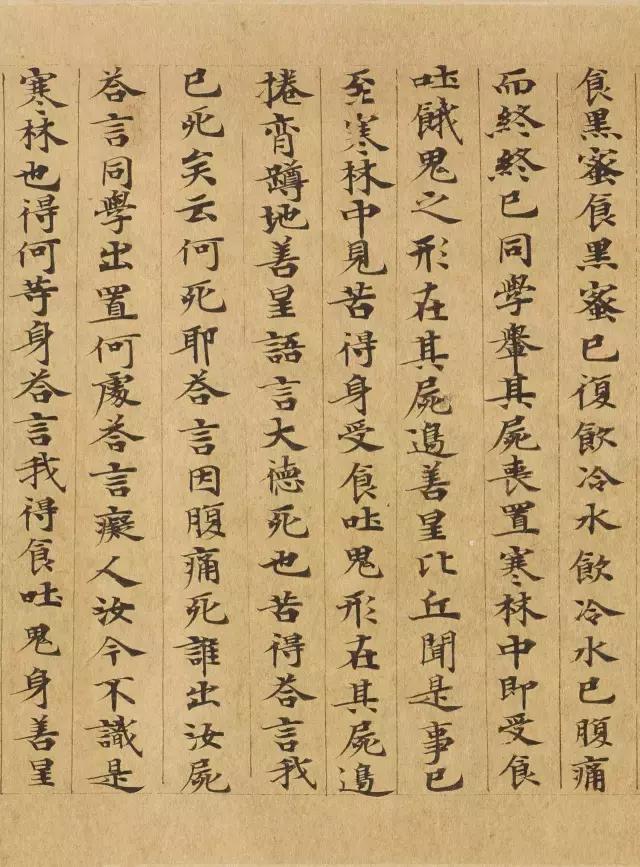 食黑蜜食黑蜜已復飲冷水飲冷水已腹痛
而終終已同學轝其屍喪置寒林中即受食
吐餓鬼之形在其屍邊善星比丘聞是事已
至寒林中見苦得身受食吐鬼形在其屍邊
捲脊蹲地善星語言大德死也苦得荅言我
已死矣云何死耶荅言因腹痛死誰出汝屍
荅言同學出置何處荅言癡人汝今不識是
寒林也得何等身荅言我得食吐鬼身善星